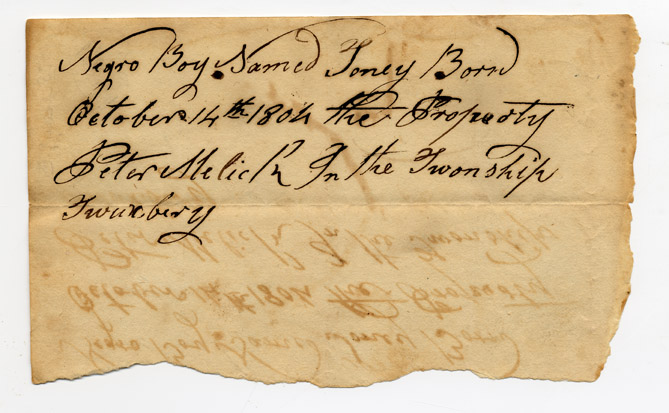 Negro Boy Named Toney Born
October 14th 1804 the Property
Peter Melick In the Twonship
Twuxbery